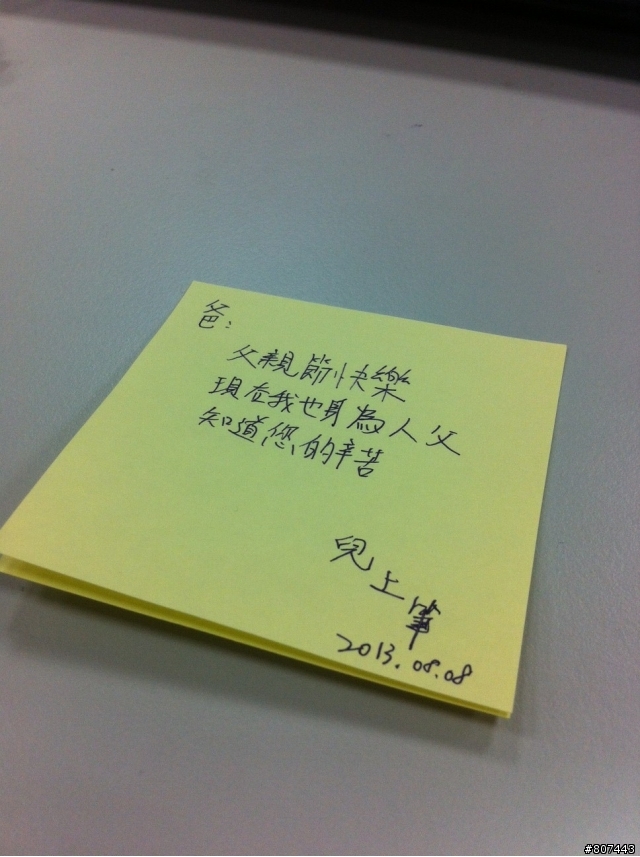 爸:
父親節快樂
現在我也身為人父
知道您的辛苦
兒
上
筆
2013.08.08
#807443